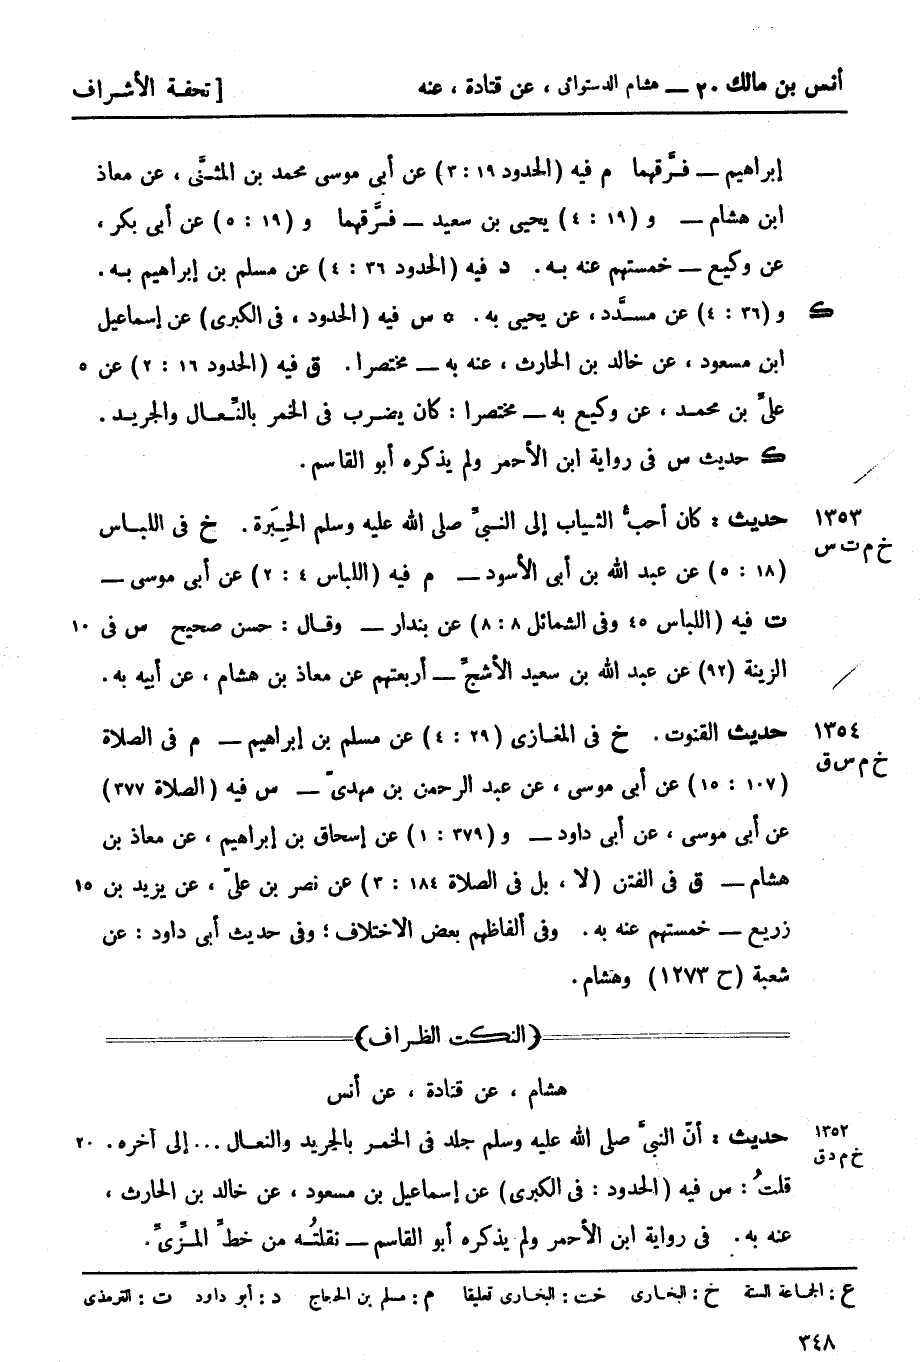 أنس بن مالك ٢٠ ــ هشام الدستوائى ، عن قتادة ، عنه [ تحفة الأشراف
إبراهيم ــ فرَّقهما م فيه (الحدود ١٩ : ٣) عن أبي موسى محمد بن المثنَّى ، عن معاذ
ابن هشام ــ و (١٩ : ٤) يحيى بن سعيد ــ فرَّقهما و (١٩ : ٥) عن أبى بكر ،
عن وكيع ــ خمستهم عنه به. د فيه (الحدود ٣٦ : ٤) عن مسلم بن إبراهيم به.
ك و (٣٦ : ٤) عن مسدَّد، عن يحيى به. * س فيه (الحدود ، فى الكبرى) عن إسماعيل
ابن مسعود ، عن خالد بن الحارث ، عنه به ــ مختصرا. ق فيه (الحدود ١٦ : ٢) عن ٥
علىِّ بن محمد ، عن وكيع به ــ مختصرا : كان يضرب فى الخمر بالنِّعال والجريد.
ك حديث س فى رواية ابن الأحمر ولم يذكره أبو القاسم.
١٣٥٣ حديث : كان أحبُّ الثياب إلى النبىِّ صلى الله عليه وسلم الحِبَرة. خ فى اللباس
خ م ت س (١٨ : ٥) عن عبد الله بن أبى الأسود ــ م فيه (اللباس ٤ : ٢) عن أبى موسى ــ
ت فيه (اللباس ٤٥ وفى الشمائل ٨ : ٨) عن بندار ــ وقال : حسن صحيح س فى ١٠
الزينة (٩٢) عن عبد الله بن سعيد الأشجِّ ــ أربعتهم عن معاذ بن هشام ، عن أبيه به.
١٣٥٤ حديث القنوت. خ فى المغازى (٢٩ : ٤) عن مسلم بن إبراهيم ــ م فى الصلاة
خ م س ق (١٠٧ : ١٥) عن أبى موسى ، عن عبد الرحمن بن مهدىّ ــ س فيه (الصلاة ٣٧٧)
عن أبى موسى ، عن أبى داود ــ و (٣٧٩ : ١) عن إسحاق بن إبراهيم ، عن معاذ بن
هشام ــ ق فى الفتن (لا ، بل فى الصلاة ١٨٤ : ٣) عن نصر بن علىّ ، عن يزيد بن ١٥
زريع ــ خمستهم عنه به. وفى ألفاظهم بعض الاختلاف ؛ وفى حديث أبى داود : عن
شعبة (ح ١٢٧٣) وهشام.
(النكت الظراف)
هشام ، عن قتادة ، عن أنس
١٣٥٢ حديث : أنّ النبىَّ صلى الله عليه وسلم جلد فى الخمر بالجريد والنعال ... إلى آخره. ٢٠
خ م د ق
قلتُ : س فيه (الحدود : فى الكبرى) عن إسماعيل بن مسعود ، عن خالد بن الحارث ،
عنه به. فى رواية ابن الأحمر ولم يذكره أبو القاسم ــ نقلتُه من خطِّ المزِّىِّ.
ع : الجماعة الستة خ : البخارى خت : البخارى تعليقا م : مسلم بن الحجاج د : أبو داود ت : الترمذى
٣٤٨